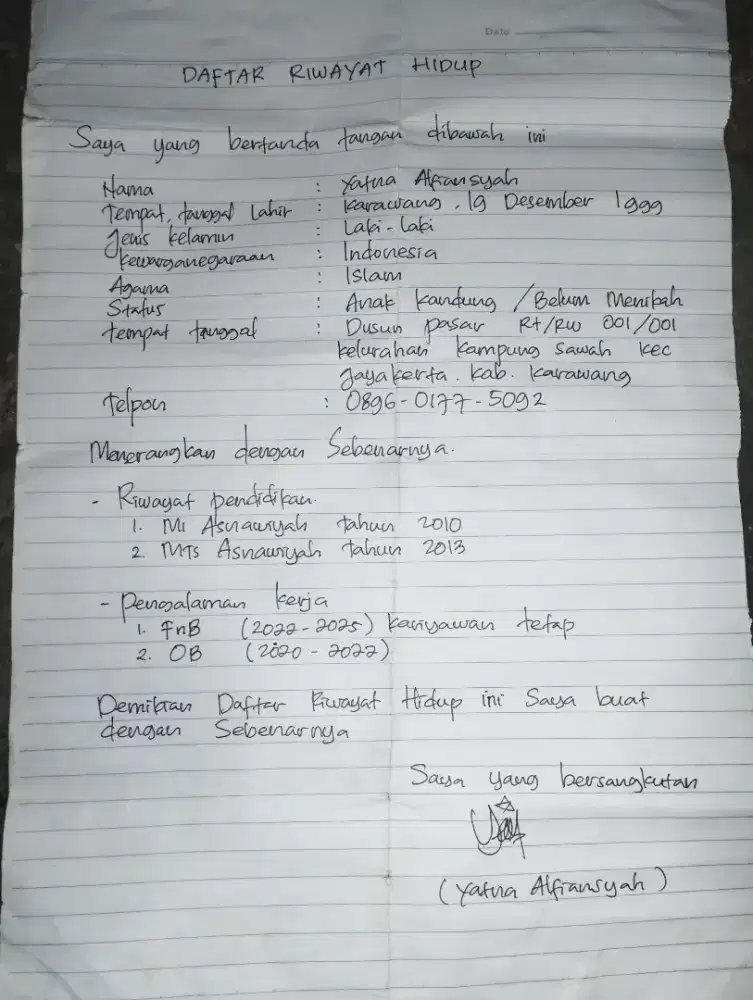 Date
DAFTAR RIWAYAT HIDUP
Saya yang bertanda tangan dibawah ini
Nama : Yatna Alfiansyah
Tempat, tanggal Lahir : Karawang, 19 Desember 1999
Jenis kelamin : Laki-laki
kewarganegaraan : Indonesia
Agama : Islam
Status : Anak kandung / Belum Menikah
tempat tanggal : Dusun pasar Rt/Rw 001/001
kelurahan kampung sawah kec
Jayakerta. kab. karawang
telpon : 0896-0177-5092
Menerangkan dengan Sebenarnya.
- Riwayat pendidikan.
1. MI Asnawiyah tahun 2010
2. MTs Asnawiyah tahun 2013
- pengalaman kerja
1. FnB (2022-2025) kariyawan tetap
2. OB (2020 - 2022)
Demikian Daftar Riwayat Hidup ini Saya buat
dengan Sebenarnya
Saya yang bersangkutan
(Yatna Alfiansyah)